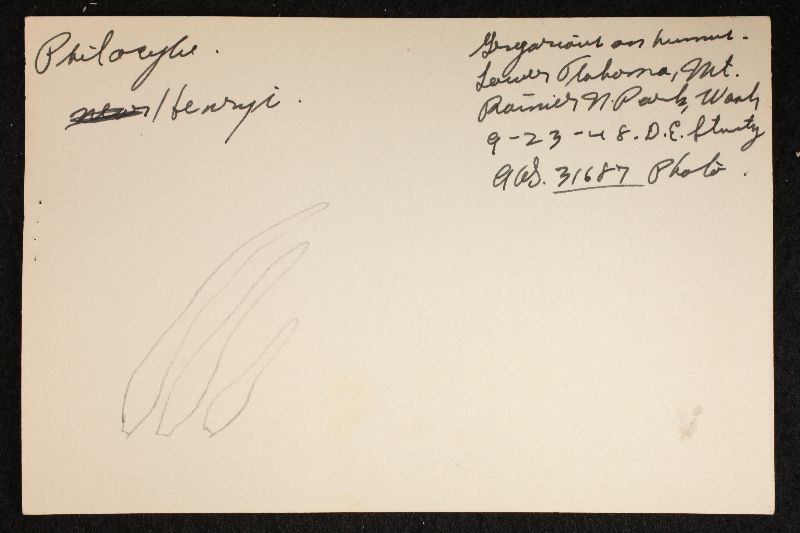 Philocybe.
new Henryi.
Gregarious on humus.
Lower Tahoma, Mt.
Rainier N. Park, Wash
9-23-48. D.E. Stuntz
AHS. 31687 Photo.